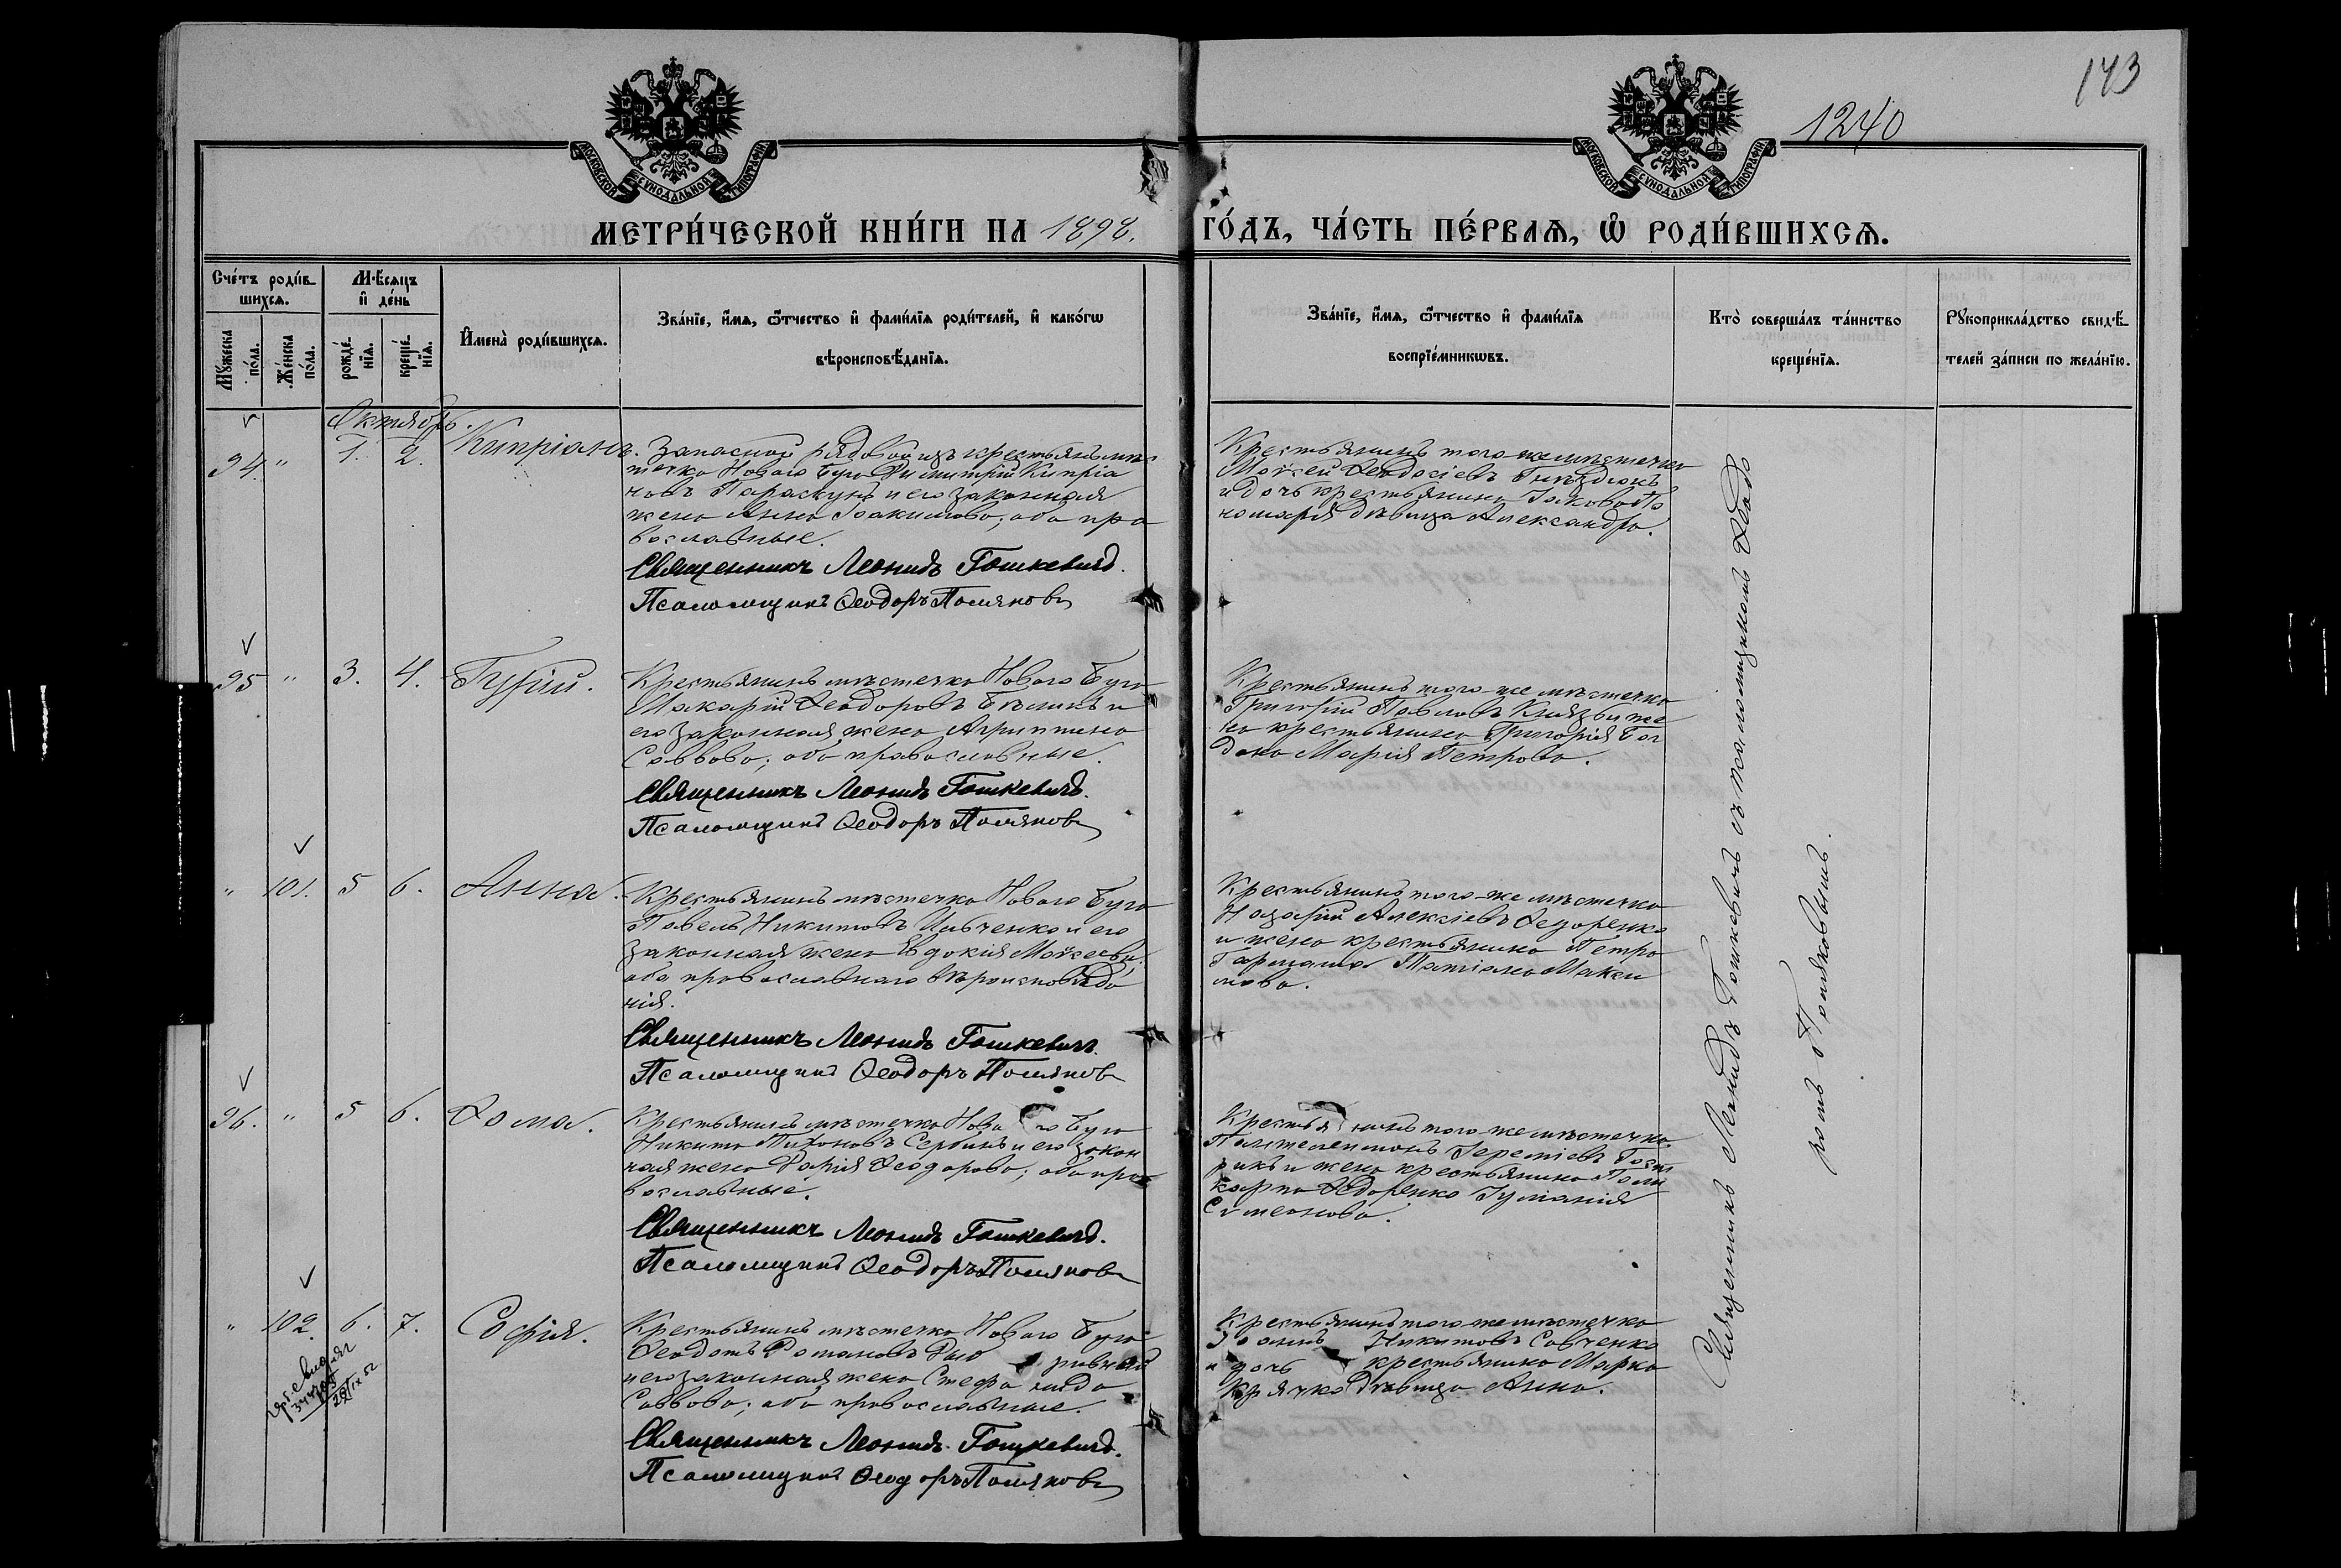 173
1240
МОСКОВСКОЙ СѴНОДАЛЬНОЙ ТИПОГРАФІИ
МОСКОВСКОЙ СѴНОДАЛЬНОЙ ТИПОГРАФІИ
МЕТРИ́ЧЕСКОЙ КНИ́ГИ НА 1898. ГО́ДЪ, ЧА́СТЬ ПЕ́РВАЯ, Ѡ РОДИ́ВШИХСЯ.
Сче́тъ роди́в-
шихся.
Му́жеска по́ла.
Же́нска по́ла.
Мѣ́сяцъ
и де́нь
рожде́нїя.
креще́нїя.
Имена̀ роди́вшихся.
Зва́нїе, и́мя, ѻ҆́тчество и фами́лїя роди́телей, и како́гѡ
вѣроисповѣ́данїя.
Зва́нїе, и́мя, ѻ҆́тчество и фами́лїя
воспрїе́мникѡвъ.
Кто̀ соверша́лъ та́инство
креще́нїя.
Рꙋкоприкла́дство свидѣ́-
телей за́писи по жела́нїю.
Октябрь.
94. " 1. 2. Кипріанъ.
Запасной рядовой изъ крестьянъ мѣс
течка Новаго Буга Димитрій Кипріа
новъ Параскунъ и его законная
жена Анна Іоакимова; оба пра
вославные.
Священникъ Леонидъ Гошкевичъ.
Псаломщикъ Ѳеодоръ Поляковъ
Крестьянинъ того-же мѣстечка
Моѵсей Ѳеодосіевъ Гнѣздюкъ
и дочь крестьянина Іакова По
номаря дѣвица Александра.
95 " 3. 4. Гурій.
Крестьянинъ мѣстечка Новаго Буга
Макарій Ѳеодоровъ Бѣликъ и
его законная жена Агриппина
Саввова; оба православные.
Священникъ Леонидъ Гошкевичъ.
Псаломщикъ Ѳеодоръ Поляковъ
Крестьянинъ того-же мѣстечка
Григорій Павловъ Князь и же
на крестьянина Григорія Бог
дана Марія Петрова.
" 101. 5 6. Анна.
Крестьянинъ мѣстечка Новаго Буга
Павелъ Никитовъ Ивченко и его
законная жена Евдокія Моѵсеева;
оба православнаго вѣроисповѣда
нія.
Священникъ Леонидъ Гошкевичъ.
Псаломщикъ Ѳеодоръ Поляковъ
Крестьянинъ того-же мѣстечка
Назарій Алексіевъ Ѳедоренко
и жена крестьянина Петра
Гармаша Татіана Макси
мова.
96. " 5 6. Ѳома.
Крестьянинъ мѣстечка Новаго Буга
Никита Тихоновъ Сербинъ и его закон
ная жена Дарія Ѳеодорова; оба пра
вославные.
Священникъ Леонидъ Гошкевичъ.
Псаломщикъ Ѳеодоръ Поляковъ
Крестьянинъ того-же мѣстечка
Пантелеимонъ Іереміевъ
и жена крестьянина Поли
карпа Ѳедоренко Іуліанія
Симеонова.
" 102. 6. 7. Софія.
Крестьянинъ мѣстечка Новаго Буга
Ѳеодотъ Романовъ
и его законная жена Стефанида
Саввова; оба православные.
Священникъ Леонидъ Гошкевичъ.
Псаломщикъ Ѳеодоръ Поляковъ
Крестьянинъ того-же мѣстечка
Іоаннъ Никитовъ Савченко
и дочь крестьянина Марка
Крячка дѣвица Анна.
Священникъ Леонидъ Гошкевичъ съ псаломщикомъ Ѳеодо
ромъ Поляковымъ.